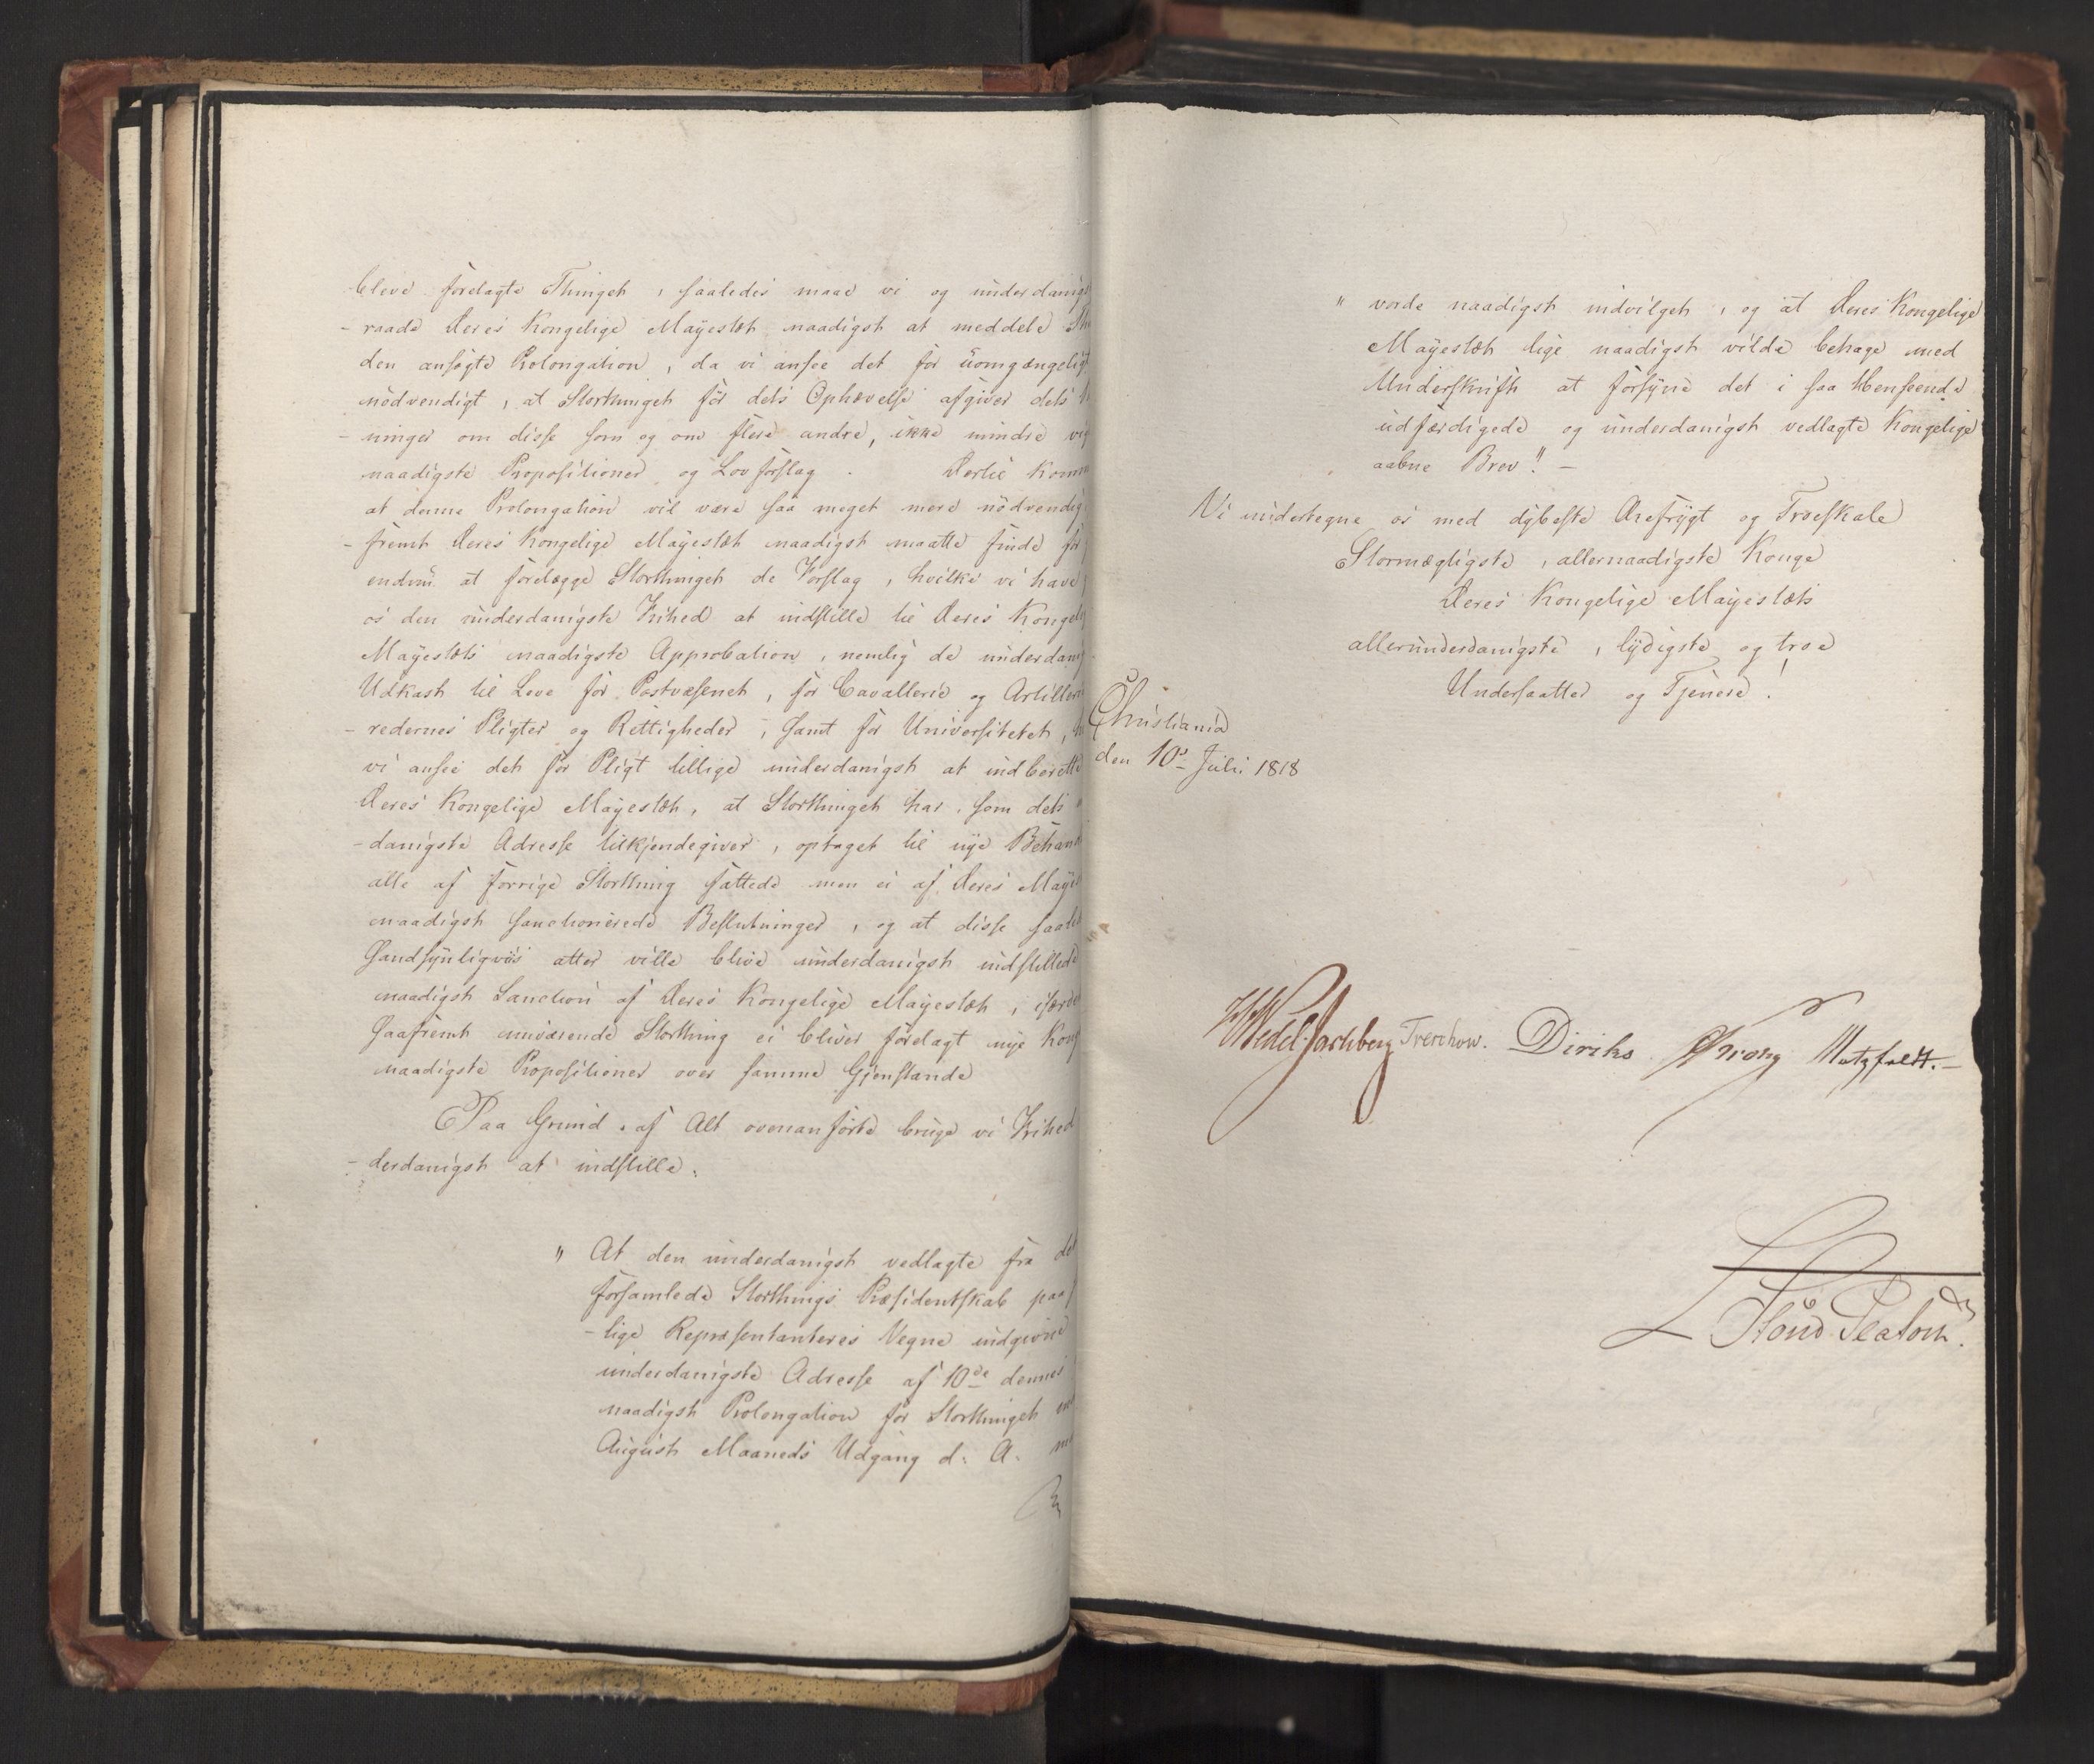 bleve forelagte Thinget, saaledes maae vi og underdanigst
-raade Deres Kongelige Mayestæt naadigst at meddele
den ansøgte Prolongation, da vi ansee det for uomgængeligt
nødvendigt, at Storthinget før dets Ophævelse afgiver dets
-ninger om disse som og om flere andre, ikke mindre
naadigste Propositioner og Lovforslag. Dertil
at denne Prolongation vil være saa meget mere nødvendig
-fremt Deres Kongelige Mayestæt naadigst maatte finde
endnu at forelægge Storthinget de Forslag, hvilke vi have
os den underdanigste Frihed at indstille til Deres
Mayestæts naadigste Approbation, nemlig de
Udkast til Love for Postvæsenet, for Cavallerie og
-redernes Pligter og Rettigheder, samt for Universitetet,
vi ansee det for Pligt tillige underdanigst at indberette
Deres Kongelige Mayestæt, at Storthinget har, som dets
-danigste Adresse tilkjendegiver, optaget til nye
alle af forrige Storthing fattede men ei af Deres
naadigst sanctionerede Beslutninger, og at disse
Sandsynligviis atter ville blive underdanigst indstillede
naadigst Sanction af Deres Kongelige Mayestæt,
saafremt nuværende Storthing ei bliver forelagt nye
naadigste Propositioner over samme Gjenstande
Paa Grund af Alt ovenanførte bruge vi Frihed
-derdanigst at indstille:
" At den underdanigst vedlagte fra det
forsamlede Storthings Præsidentskab paa
-lige Repræsentanteres Vegne indgivne
underdanigste Adresse af 10de dennes
naadigst Prolongation for Storthinget
August Maaneds Udgang d: A:
" vorde naadigst indvilget, og at Deres Kongelige
Mayestæt lige naadigst vilde behage med
Underskrift at forsyne det i saa Henseende
udfærdigede og underdanigst vedlagte Kongelige
aabne Brev." -
Vi undertegne os med dybeste Ærefrygt og Troeskab
Stormægtigste, allernaadigste Konge
Deres Kongelige Mayestæts
allerunderdanigste, lydigste og troe
Undersaatter og Tjenere!
Christiania
den 10de Juli 1818
HWedel Jarlsberg Treschow. Diriks Krog Motzfeldt.-